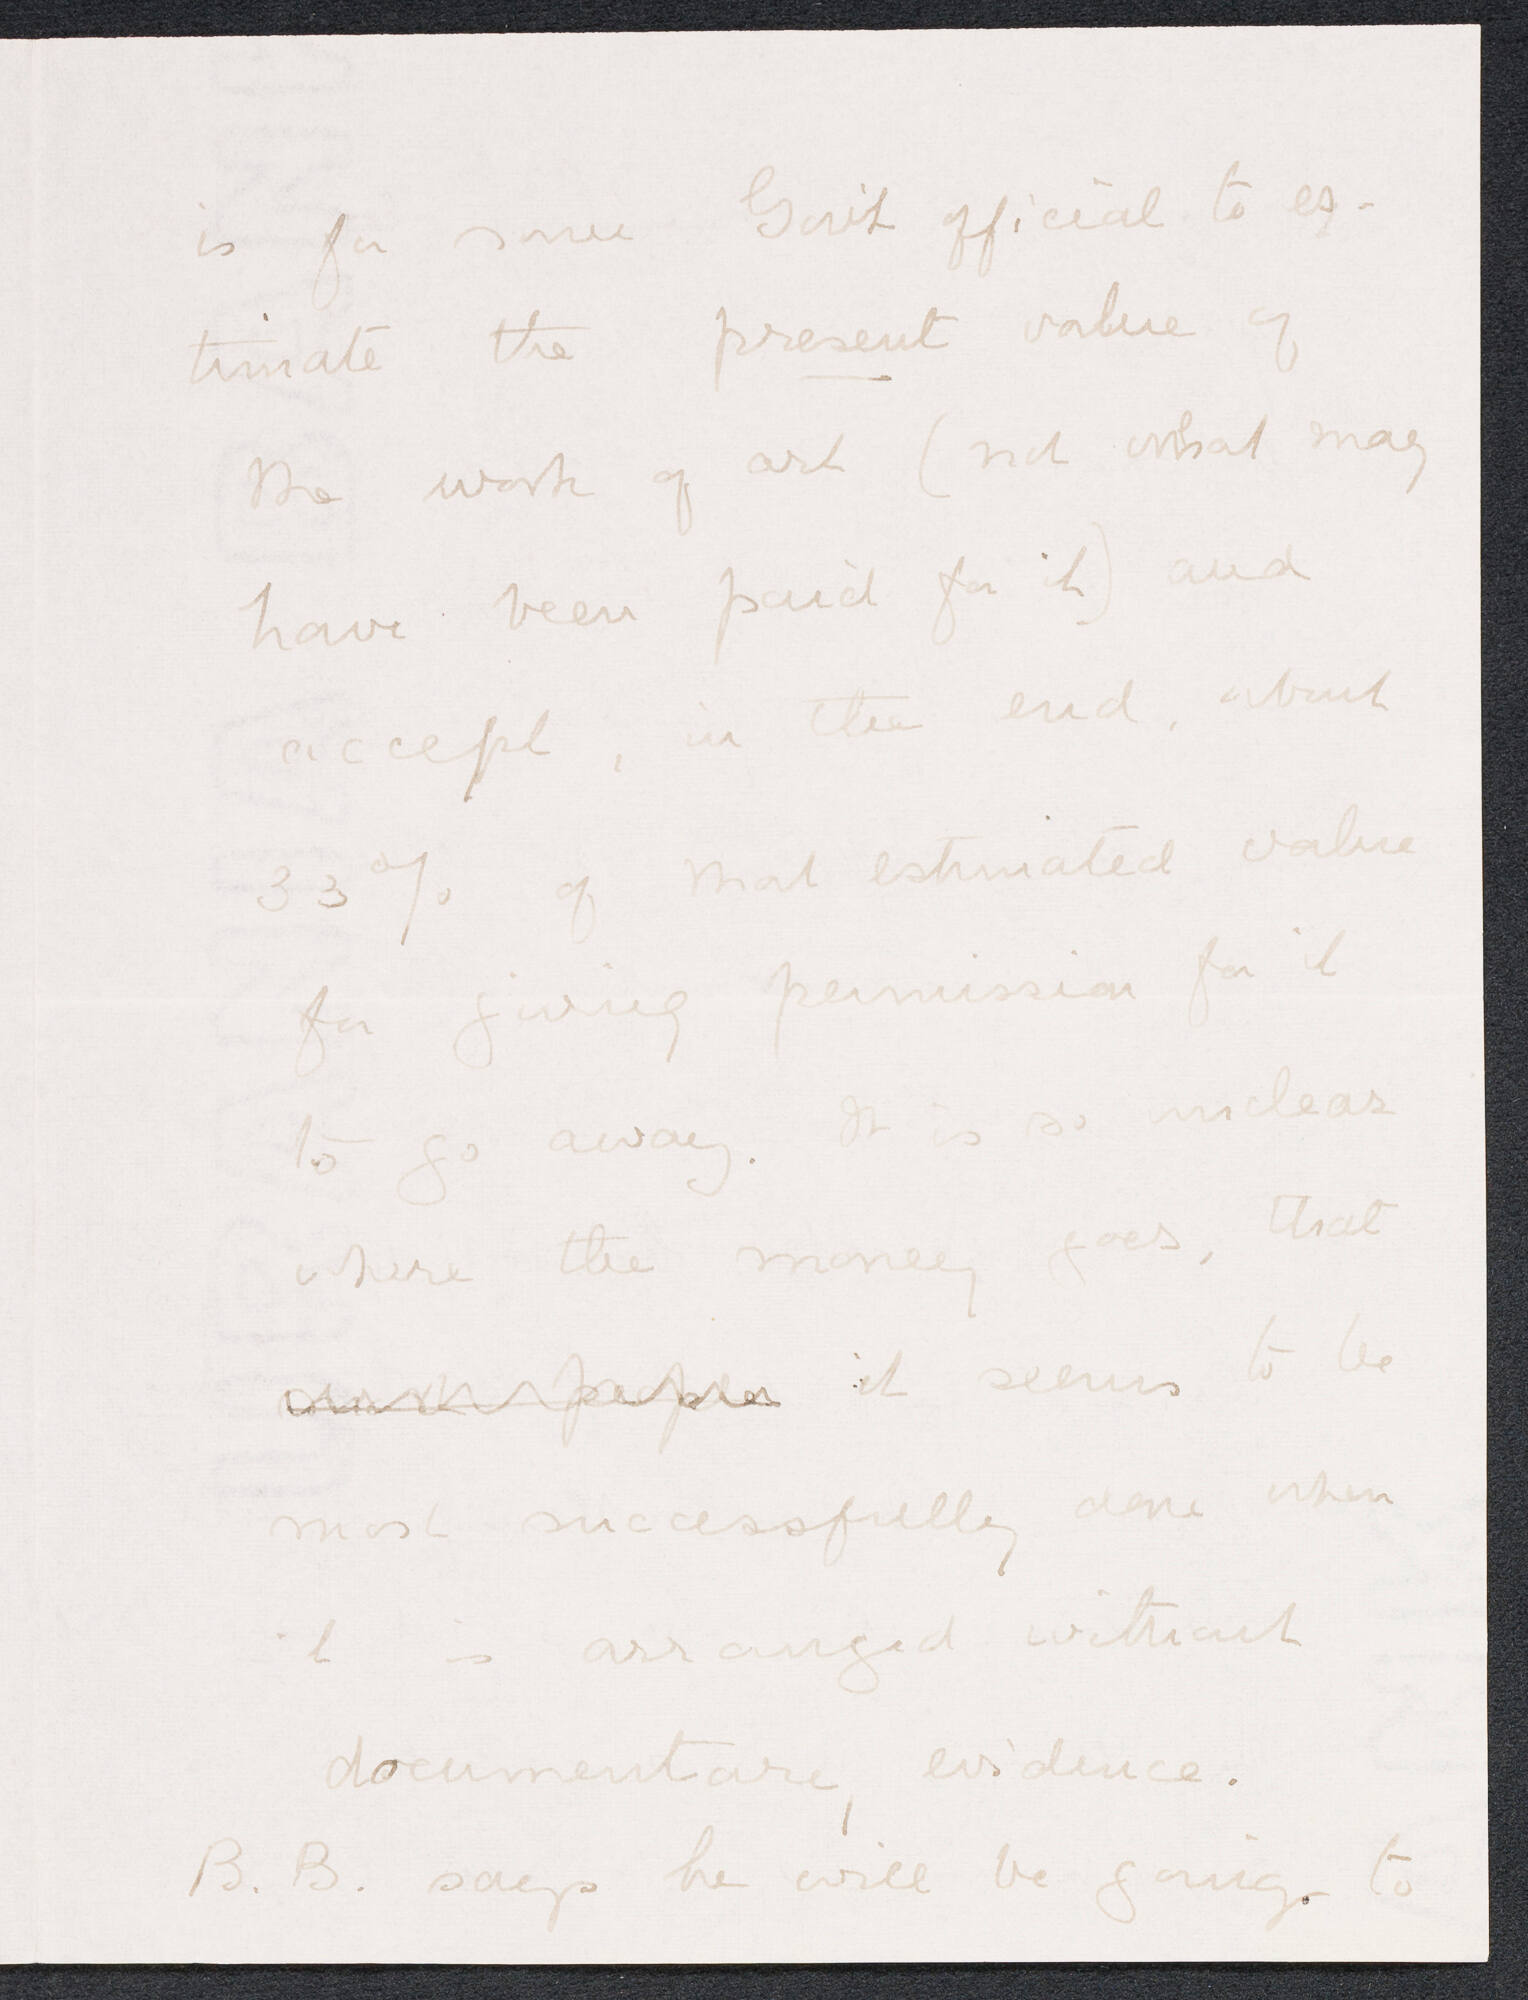 is for some Gov't official to es-
timate the present value of
the work of art (not what may
have been paid for it) and
accept, in the end, about
33% of that estimated value
for giving permission for it
to go away. It is so unclear
where the money goes, that
it seems to be
most successfully done when
it is arranged without
documentary evidence.
B.B. says he will be going to